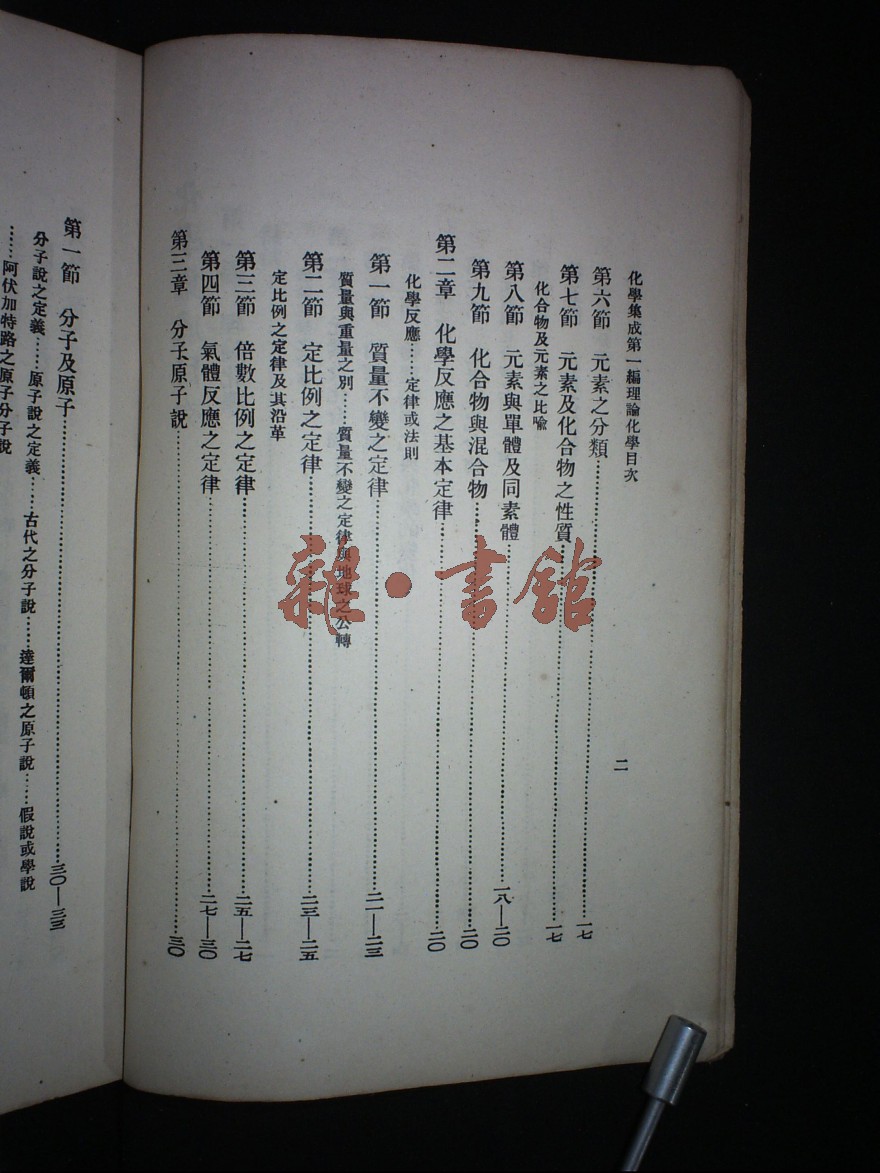 化學集成第一編理論化學目次
二
第六節　元素之分類……一七
第七節　元素及化合物之性質……一七
化合物及元素之比喩
第八節　元素與單體及同素體……一八—二〇
第九節　化合物與混合物……二〇
第二章　化學反應之基本定律……二〇
化學反應……定律或法則
第一節　質量不變之定律……二一—二三
質量與重量之別……質量不變之定律與地球之公轉
第二節　定比例之定律……二三—二五
定比例之定律及其沿革
第三節　倍數比例之定律……二五—二七
第四節　氣體反應之定律……二七—三〇
第三章　分子原子說……三〇
第一節　分子及原子……三〇—三三
分子說之定義……原子說之定義……古代之分子說……達爾頓之原子說……假說或學說
……阿伏加特路之原子分子說
雜·書館